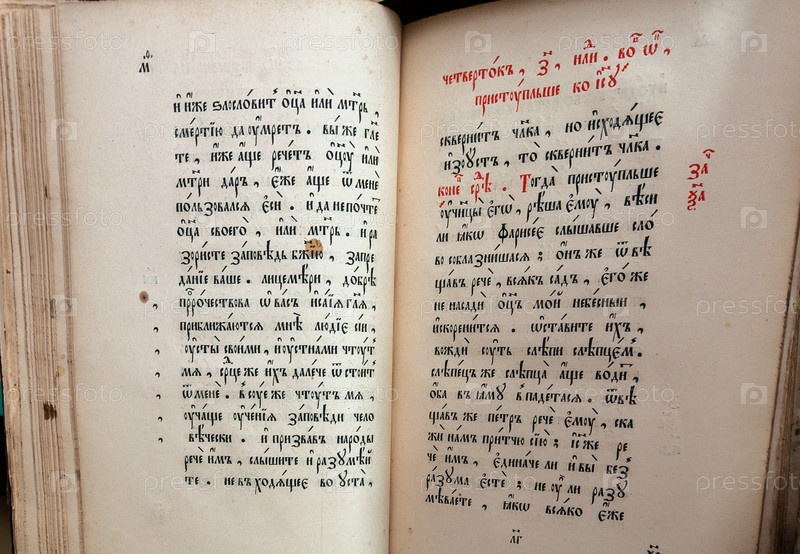 м҃ѳ
и҆ и҆́же ѕлосло́витъ ѻ҆ц҃а и҆лѝ мт҃рь ,
сме́ртїю да ᲂу҆́мретъ . вы́ же гл҃е
те , и҆́же а҆́ще рече́тъ ѻ҆ц҃ꙋ и҆лѝ
мт҃ри да́ръ , є҆́же а҆́ще ѿ менє
по́льзовалсѧ є҆сѝ . и҆ да не почте́тъ
ѻ҆ц҃а своего̀ , и҆лѝ мт҃рь . и҆ ра
зори́сте за́повѣдь бж҃їю , за преда́нїе
ва́ше . лицемѣ́ри , до́брѣ
прⷪ҇ро́чествова ѡ҆ ва́съ и҆са́їѧ гл҃ѧ ,
приближа́ютсѧ мнѣ̀ лю́дїе сі́и ,
ᲂу҆сты̀ свои́ми , и҆ ᲂу҆стна́ми чтꙋ́тъ
мѧ̀ , срⷣце же и҆́хъ дале́че ѿстои́тъ
ѿ менє̀ . всꙋ́е же чтꙋ́тъ мѧ̀ ,
ᲂу҆ча́ще ᲂу҆че́нїѧ за́повѣди чело
вѣ́чески . и҆ призва́въ наро́ды
речѐ и҆̀мъ , слы́шите и҆ разꙋмѣ́й
те . не входѧ́щее во ᲂу҆ста̀ ,
четверто́къ , з҃ , и҆лѝ . во ѻ҆ⷩ҇ ѿ ,
пристꙋ́пльше ко і҆с҃ꙋ
скверни́тъ чл҃ка , но и҆сходѧ́щее
и҆зо ᲂу҆́стъ , то̀ скверни́тъ чл҃ка .
коне́ц срⷣѣ . Тогда̀ пристꙋ́пльше
ᲂу҆ченицы̀ є҆гѡ̀ , рѣ́ша є҆мꙋ̀ , вѣ́си
ли ꙗ҆́кѡ фарисе́є слы́шавше сло́
во соблазни́шасѧ ; ѻ҆́нъ же ѿвѣ
ща́въ речѐ , всѧ́къ са́дъ , є҆го́же
не насадѝ ѻ҆ц҃ъ мо́й нбⷭ҇ный ,
и҆скорени́тсѧ . ѡ҆ста́вите и҆̀хъ ,
вождѝ сꙋ́ть слѣ́пи слѣпце́мъ .
слѣпе́цъ же слѣпца̀ а҆́ще во́дитъ ,
ѻ҆́ба въ ꙗ҆́мꙋ впаде́тасѧ . ѿвѣ
ща́въ же пе́тръ речѐ є҆мꙋ̀ , ска
жѝ на́мъ при́тчю сїю̀ ; і҆с҃ же ре
чѐ и҆̀мъ , є҆дина́че ли и҆ вы̀ без̾
ра́зꙋма є҆стѐ ; не ᲂу҆̀ ли разꙋ
мѣва́ете , ꙗ҆́кѡ всѧ́ко є҆́же
за҃
л҃г